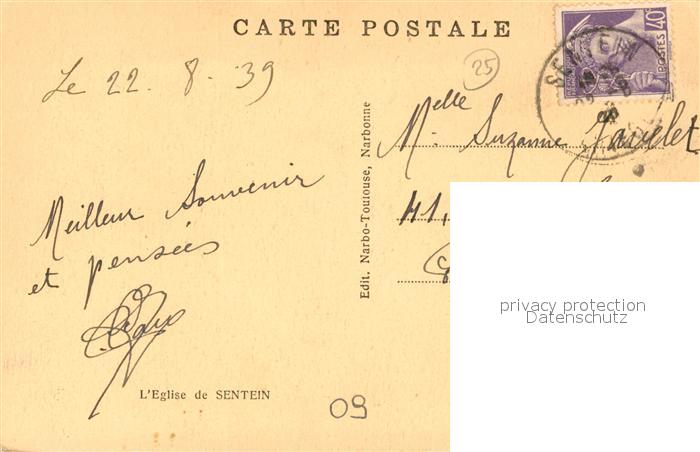 CARTE POSTALE
40c
POSTES
SENTEIN
Le 22. 8. 39
25
Melle Suzanne
41,
Meilleur Souvenir
et pensées
Edit. Narbo-Toulouse, Narbonne
privacy protection
Datenschutz
L'Eglise de SENTEIN
09